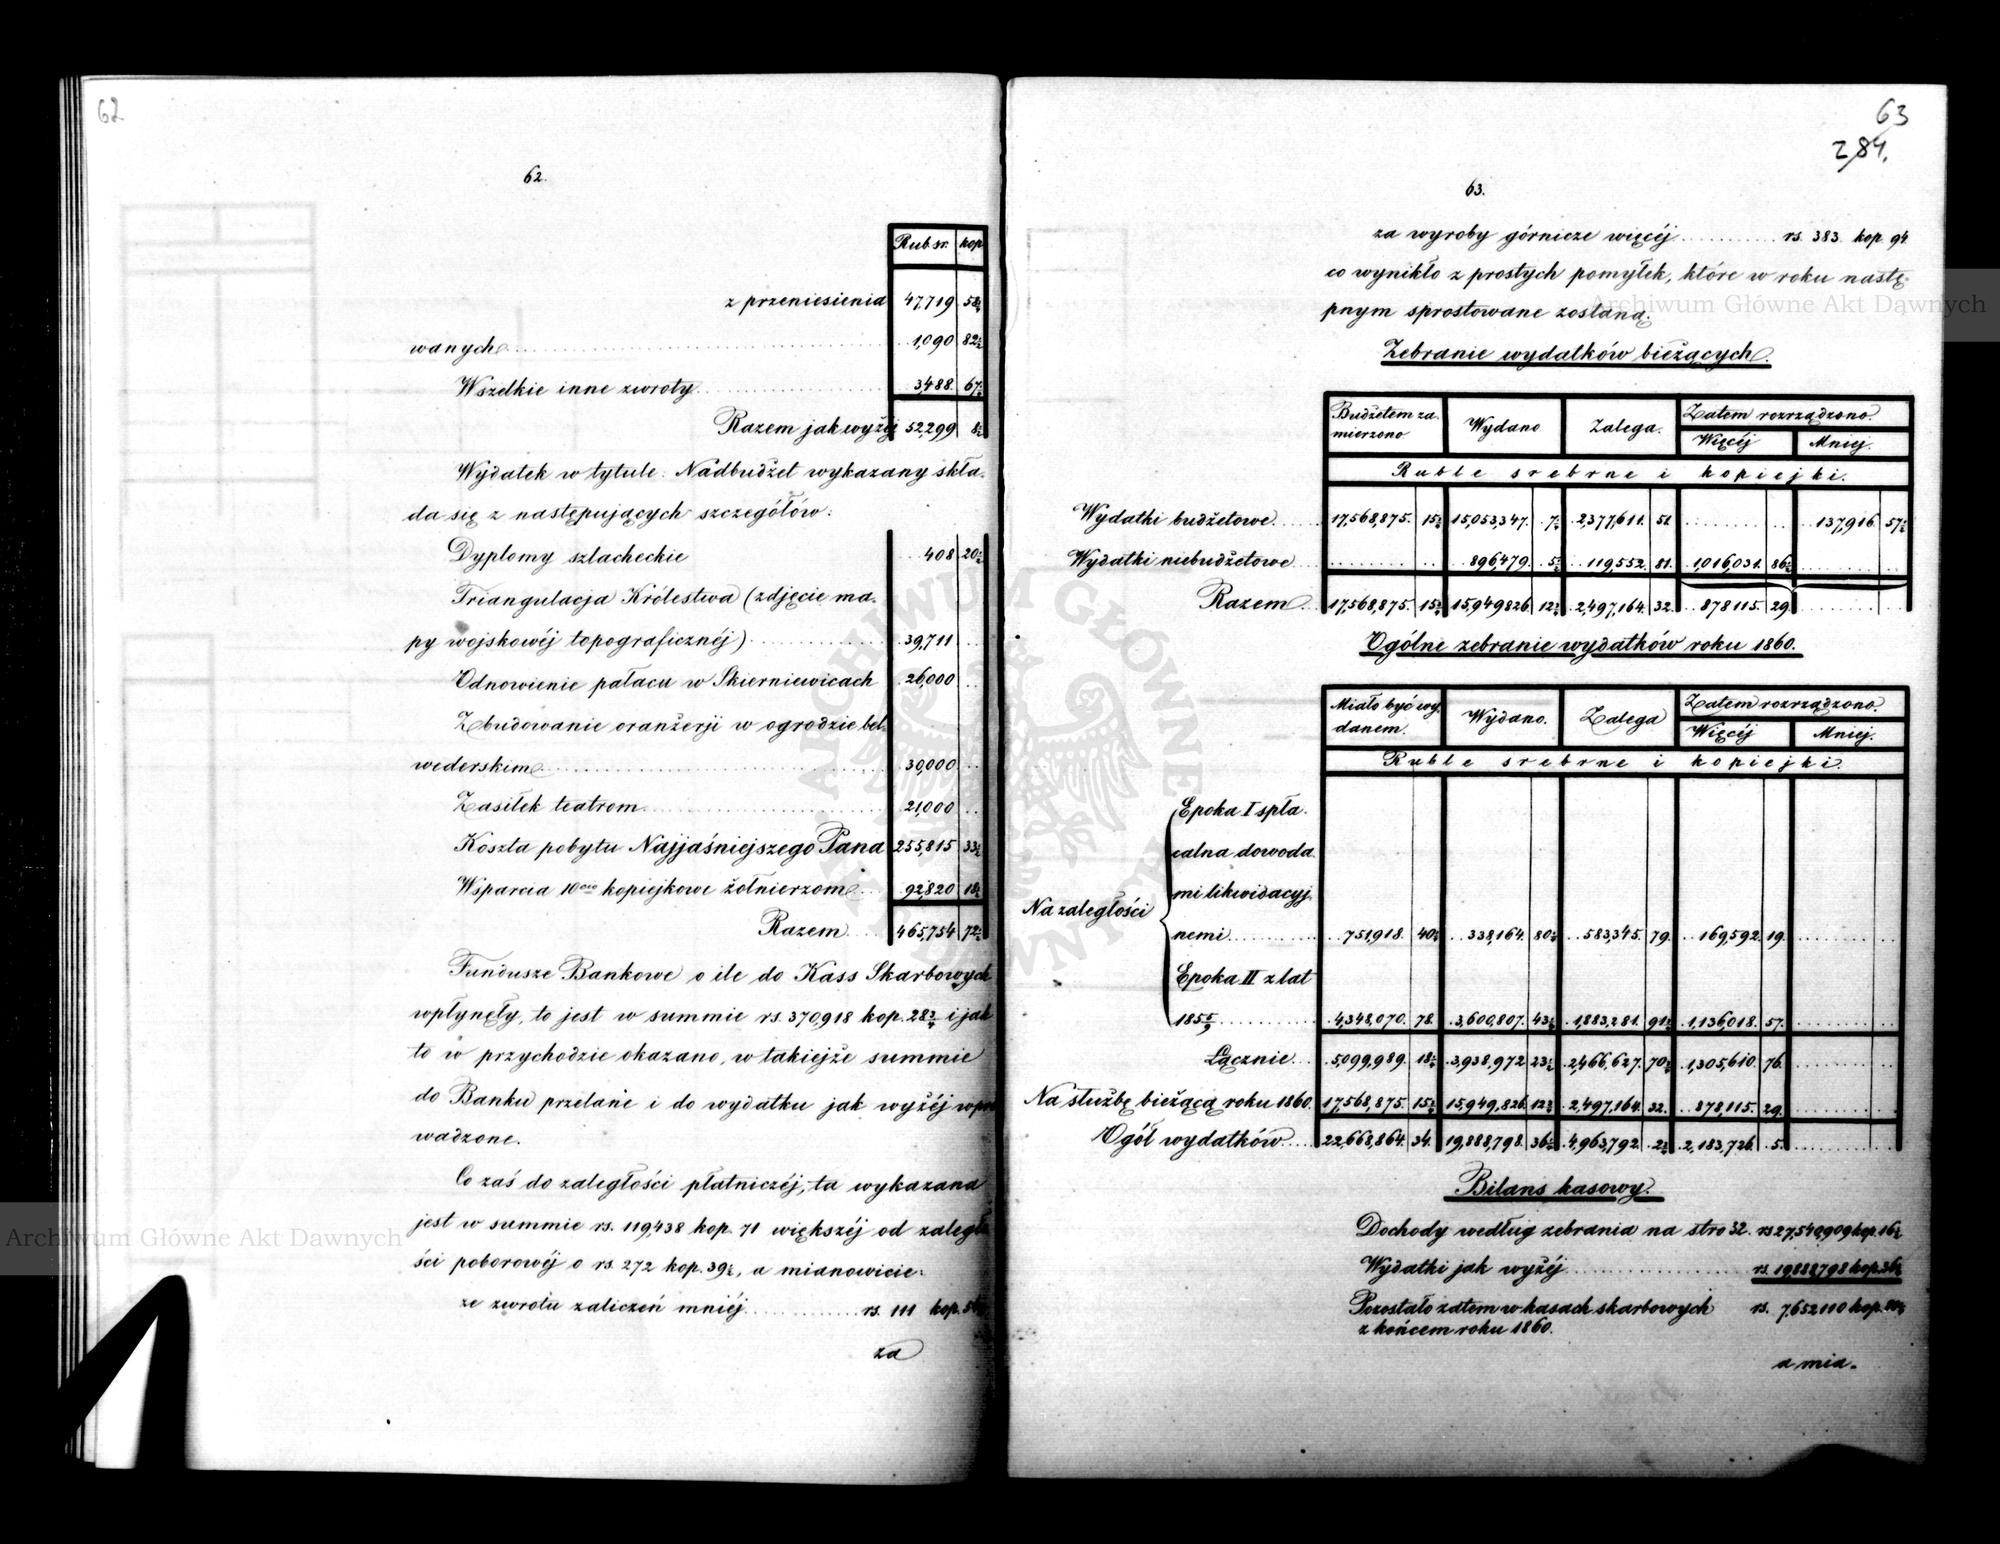 62
62.
Rub sr. kop
z przeniesienia 47,719
wanych 1,090 82½
Wszelkie inne zwroty 3,488 67
Razem jak wyżej 52,299 8½
Wydatek w tytule: Nadbudżet wykazany skła-
da się z następujących szczegółów:
Dyplomy szlacheckie 408 20½
Triangulacja Królestwa (zdjęcie ma-
py wojskowéj topograficznéj) 39,711
Odnowienie pałacu w Skierniewicach 26,000
Zbudowanie oranżerji w ogrodzie bel-
wederskim 30,000
Zasiłek teatrom 21,000
Koszta pobytu Najjaśniejszego Pana 255,815 33½
Wsparcia 10cio kopiejkowe żołnierzom 92,820 18½
Razem 465,754 72½
Fundusze Bankowe o ile do Kass Skarbowych
wpłynęły, to jest w summie rs. 370,918 kop. 28¾ i jak
to w przychodzie okazano, w takiejże summie
do Banku przelane i do wydatku jak wyżéj
wadzone.
Co zaś do zaległości płatniczéj, ta wykazana
jest w summie rs. 119,438 kop. 71 większéj od zaległo
ści poborowéj o rs. 272 kop. 39½, a mianowicie:
ze zwrotu zaliczeń mniéj rs. 111 kop.
za
63
284.
63.
za wyroby górnicze więcéj rs. 383 kop. 94
co wynikło z prostych pomyłek, które w roku nastę-
pnym sprostowane zostaną.
Zebranie wydatków bieżących.
Budżetem za- Wydano Zalega. Zatem rozrządzono.
mierzono Więcéj Mniej.
Ruble srebrne i kopiejki.
Wydatki budżetowe 17,568,875. 15½ 15,053,347. 7½ 2,377,611. 51 137,916. 57½
Wydatki niebudżetowe 896,479. 5½ 119,552. 81. 1,016,031. 86½
Razem 17,568,875. 15½ 15,949,826. 12¾ 2,497,164. 32. 878,115. 29
Ogólne zebranie wydatków roku 1860.
Miało być wy- Wydano. Zalega Zatem rozrządzono.
danem. Więcéj Mniej.
Ruble srebrne i kopiejki.
Epoka I spła-
calna dowoda-
mi likwidacyj-
Na zaległości
nemi 751,918. 40½ 338,164. 80½ 583,345. 79. 169,592. 19.
Epoka II z lat
1855/9 4,348,070. 78. 3,600,807. 43½ 1,883,281. 91½ 1,136,018. 57.
Łącznie 5,099,989. 18½ 3,938,972 23½ 2,466,627. 70½ 1,305,610. 76.
Na służbę bieżącą roku 1860. 17,568,875. 15½ 15,949,826. 12¾ 2,497,164. 32. 878,115. 29.
Ogół wydatków 22,668,864. 34. 19,888,798. 36½ 4,963,792. 2½ 2,183,726. 5.
Bilans kasowy.
Dochody według zebrania na stro 32. rs 27,540,909 kop. 16½
Wydatki jak wyżéj rs. 19,888,798 kop. 36½
Pozostało zatem w kasach skarbowych rs. 7,652,110 kop.
z końcem roku 1860.
a mia-
Archiwum Główne Akt Dawnych
Archiwum Główne Akt Dawnych
ARCHIWUM GŁÓWNE AKT DAWNYCH